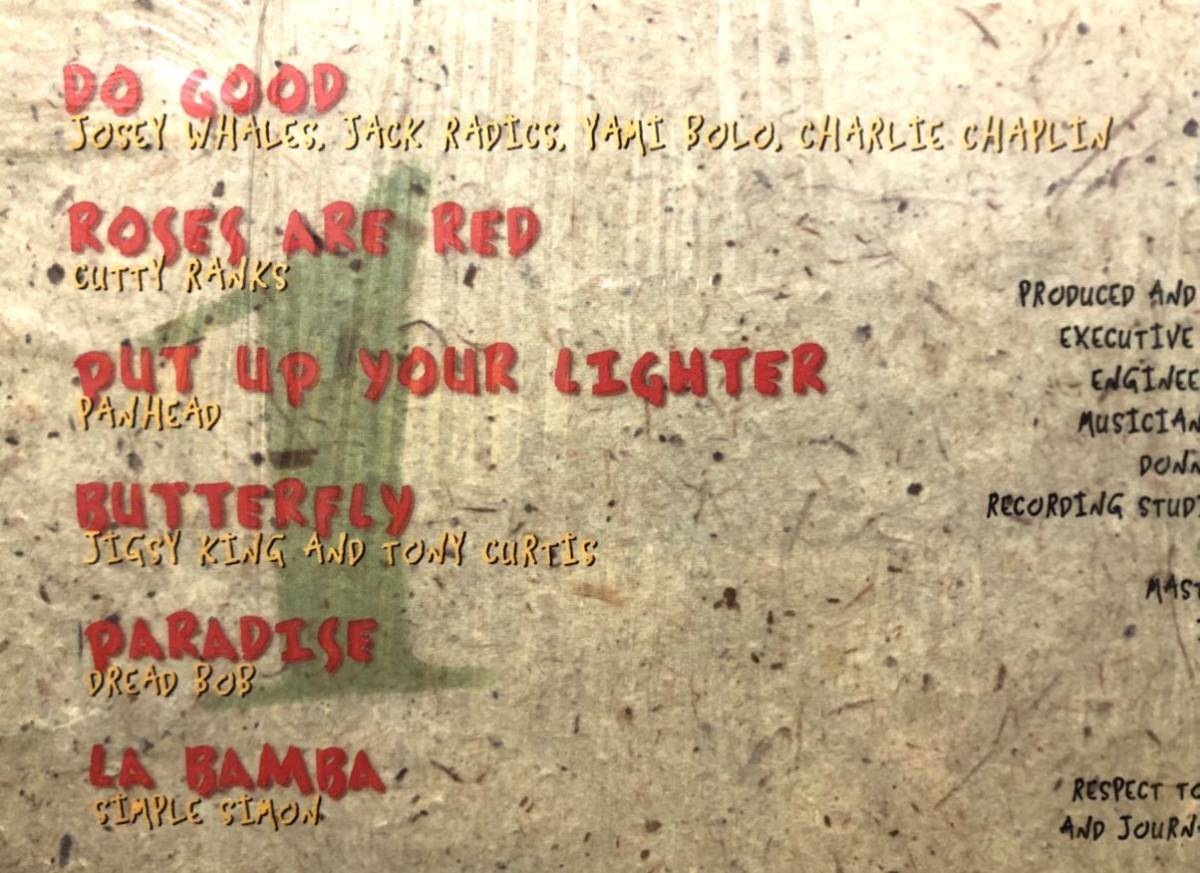 DO GOOD
JOSEY WHALES, JACK RADICS, YAMI BOLO, CHARLIE CHAPLIN
ROSES ARE RED
CUTTY RANKS
PUT UP YOUR LIGHTER
PANHEAD
BUTTERFLY
JIGSY KING AND TONY CURTIS
PARADISE
DREAD BOB
LA BAMBA
SIMPLE SIMON
1
PRODUCED AND
EXECUTIVE
ENGINEE
MUSICIAN
DONN
RECORDING STUDI
MAST
RESPECT TO
AND JOURN